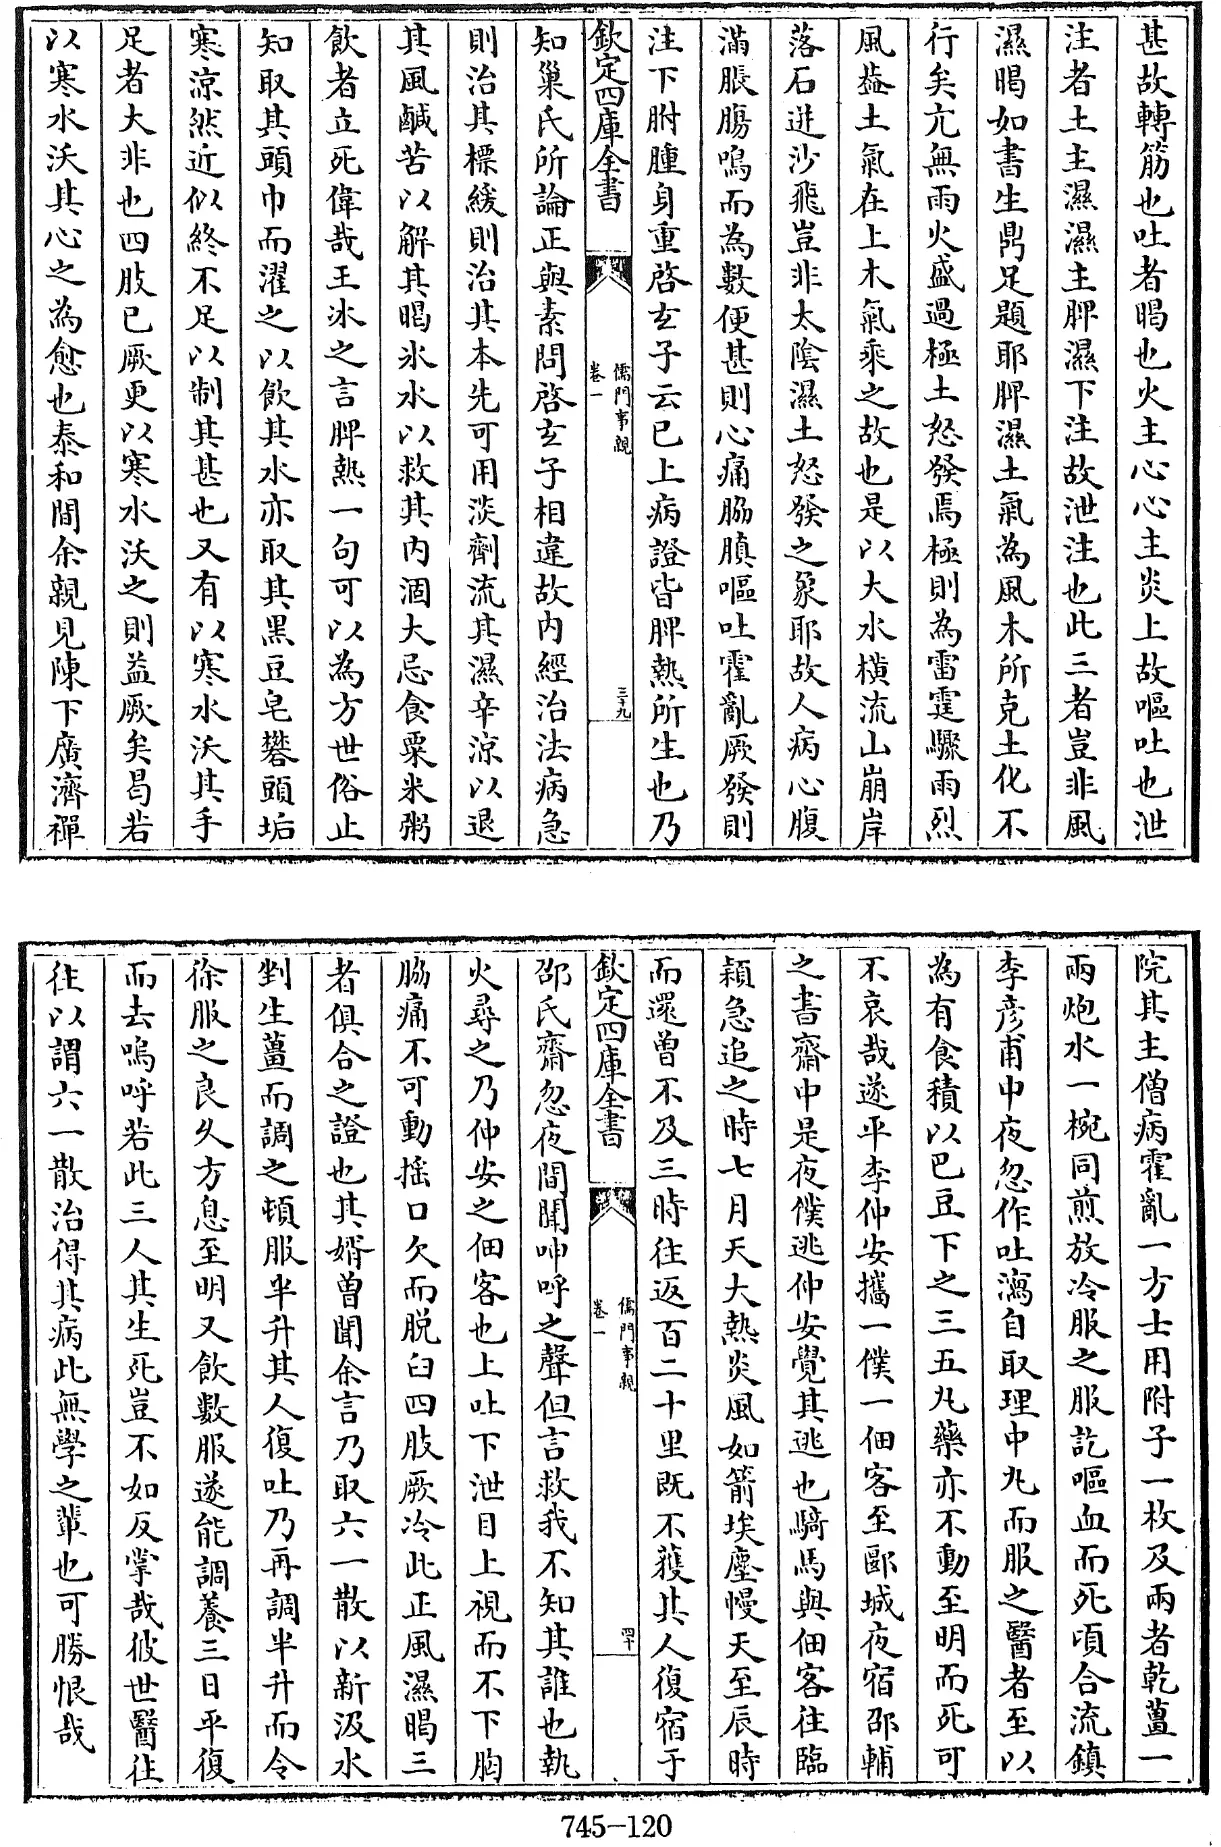 甚故轉筋也吐者暍也火主心心主炎上故嘔吐也泄
注者土主濕濕主脾濕下注故泄注也此三者豈非風
濕暍如書生鼎足題耶脾濕土氣為風木所克土化不
行矣亢無雨火盛過極土怒發焉極則為雷霆驟雨烈
風葢土氣在上木氣乘之故也是以大水橫流山崩岸
落石迸沙飛豈非太陰濕土怒發之象耶故人病心腹
滿脹腸鳴而為數便甚則心痛脇䐜嘔吐霍亂厥發則
注下胕腫身重啓玄子云已上病證皆脾熱所生也乃
欽定四庫全書
儒門事親
卷一
三十九
知巢氏所論正與素問啓玄子相違故内經治法病急
則治其標緩則治其本先可用淡劑流其濕辛涼以退
其風鹹苦以解其暍氷水以救其内涸大忌食粟米粥
飲者立死偉哉王冰之言脾熱一句可以為方世俗止
知取其頭巾而濯之以飲其水亦取其黑豆皂礬頭垢
寒涼然近似終不足以制其甚也又有以寒水沃其手
足者大非也四肢已厥更以寒水沃之則益厥矣曷若
以寒水沃其心之為愈也泰和間余親見陳下廣濟禪
院其主僧病霍亂一方士用附子一枚及兩者乾薑一
兩炮水一椀同煎放冷服之服訖嘔血而死頃合流鎮
李彦甫中夜忽作吐瀉自取理中丸而服之醫者至以
為有食積以巴豆下之三五丸藥亦不動至明而死可
不哀哉遂平李仲安攜一僕一佃客至郾城夜宿邵輔
之書齋中是夜僕逃仲安覺其逃也騎馬與佃客往臨
潁急追之時七月天大熱炎風如箭埃塵幔天至辰時
而還曾不及三時往返百二十里既不獲其人復宿于
欽定四庫全書
儒門事親
卷一
四十
邵氏齋忽夜間聞呻呼之聲但言救我不知其誰也執
火尋之乃仲安之佃客也上吐下泄目上視而不下胸
脇痛不可動揺口欠而脱臼四肢厥冷此正風濕暍三
者俱合之證也其壻曾聞余言乃取六一散以新汲水
剉生薑而調之頓服半升其人復吐乃再調半升而令
徐服之良久方息至明又飲數服遂能調養三日平復
而去嗚呼若此三人其生死豈不如反掌哉彼世醫往
往以謂六一散治得其病此無學之輩也可勝恨哉
745-120